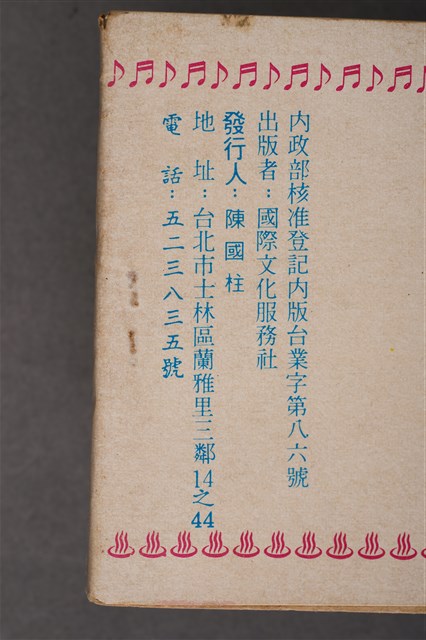 內政部核准登記內版台業字第八六號
出版者：國際文化服務社
發行人：陳國柱
地址：台北市士林區蘭雅里三鄰14之44
電話：五二三八三五號